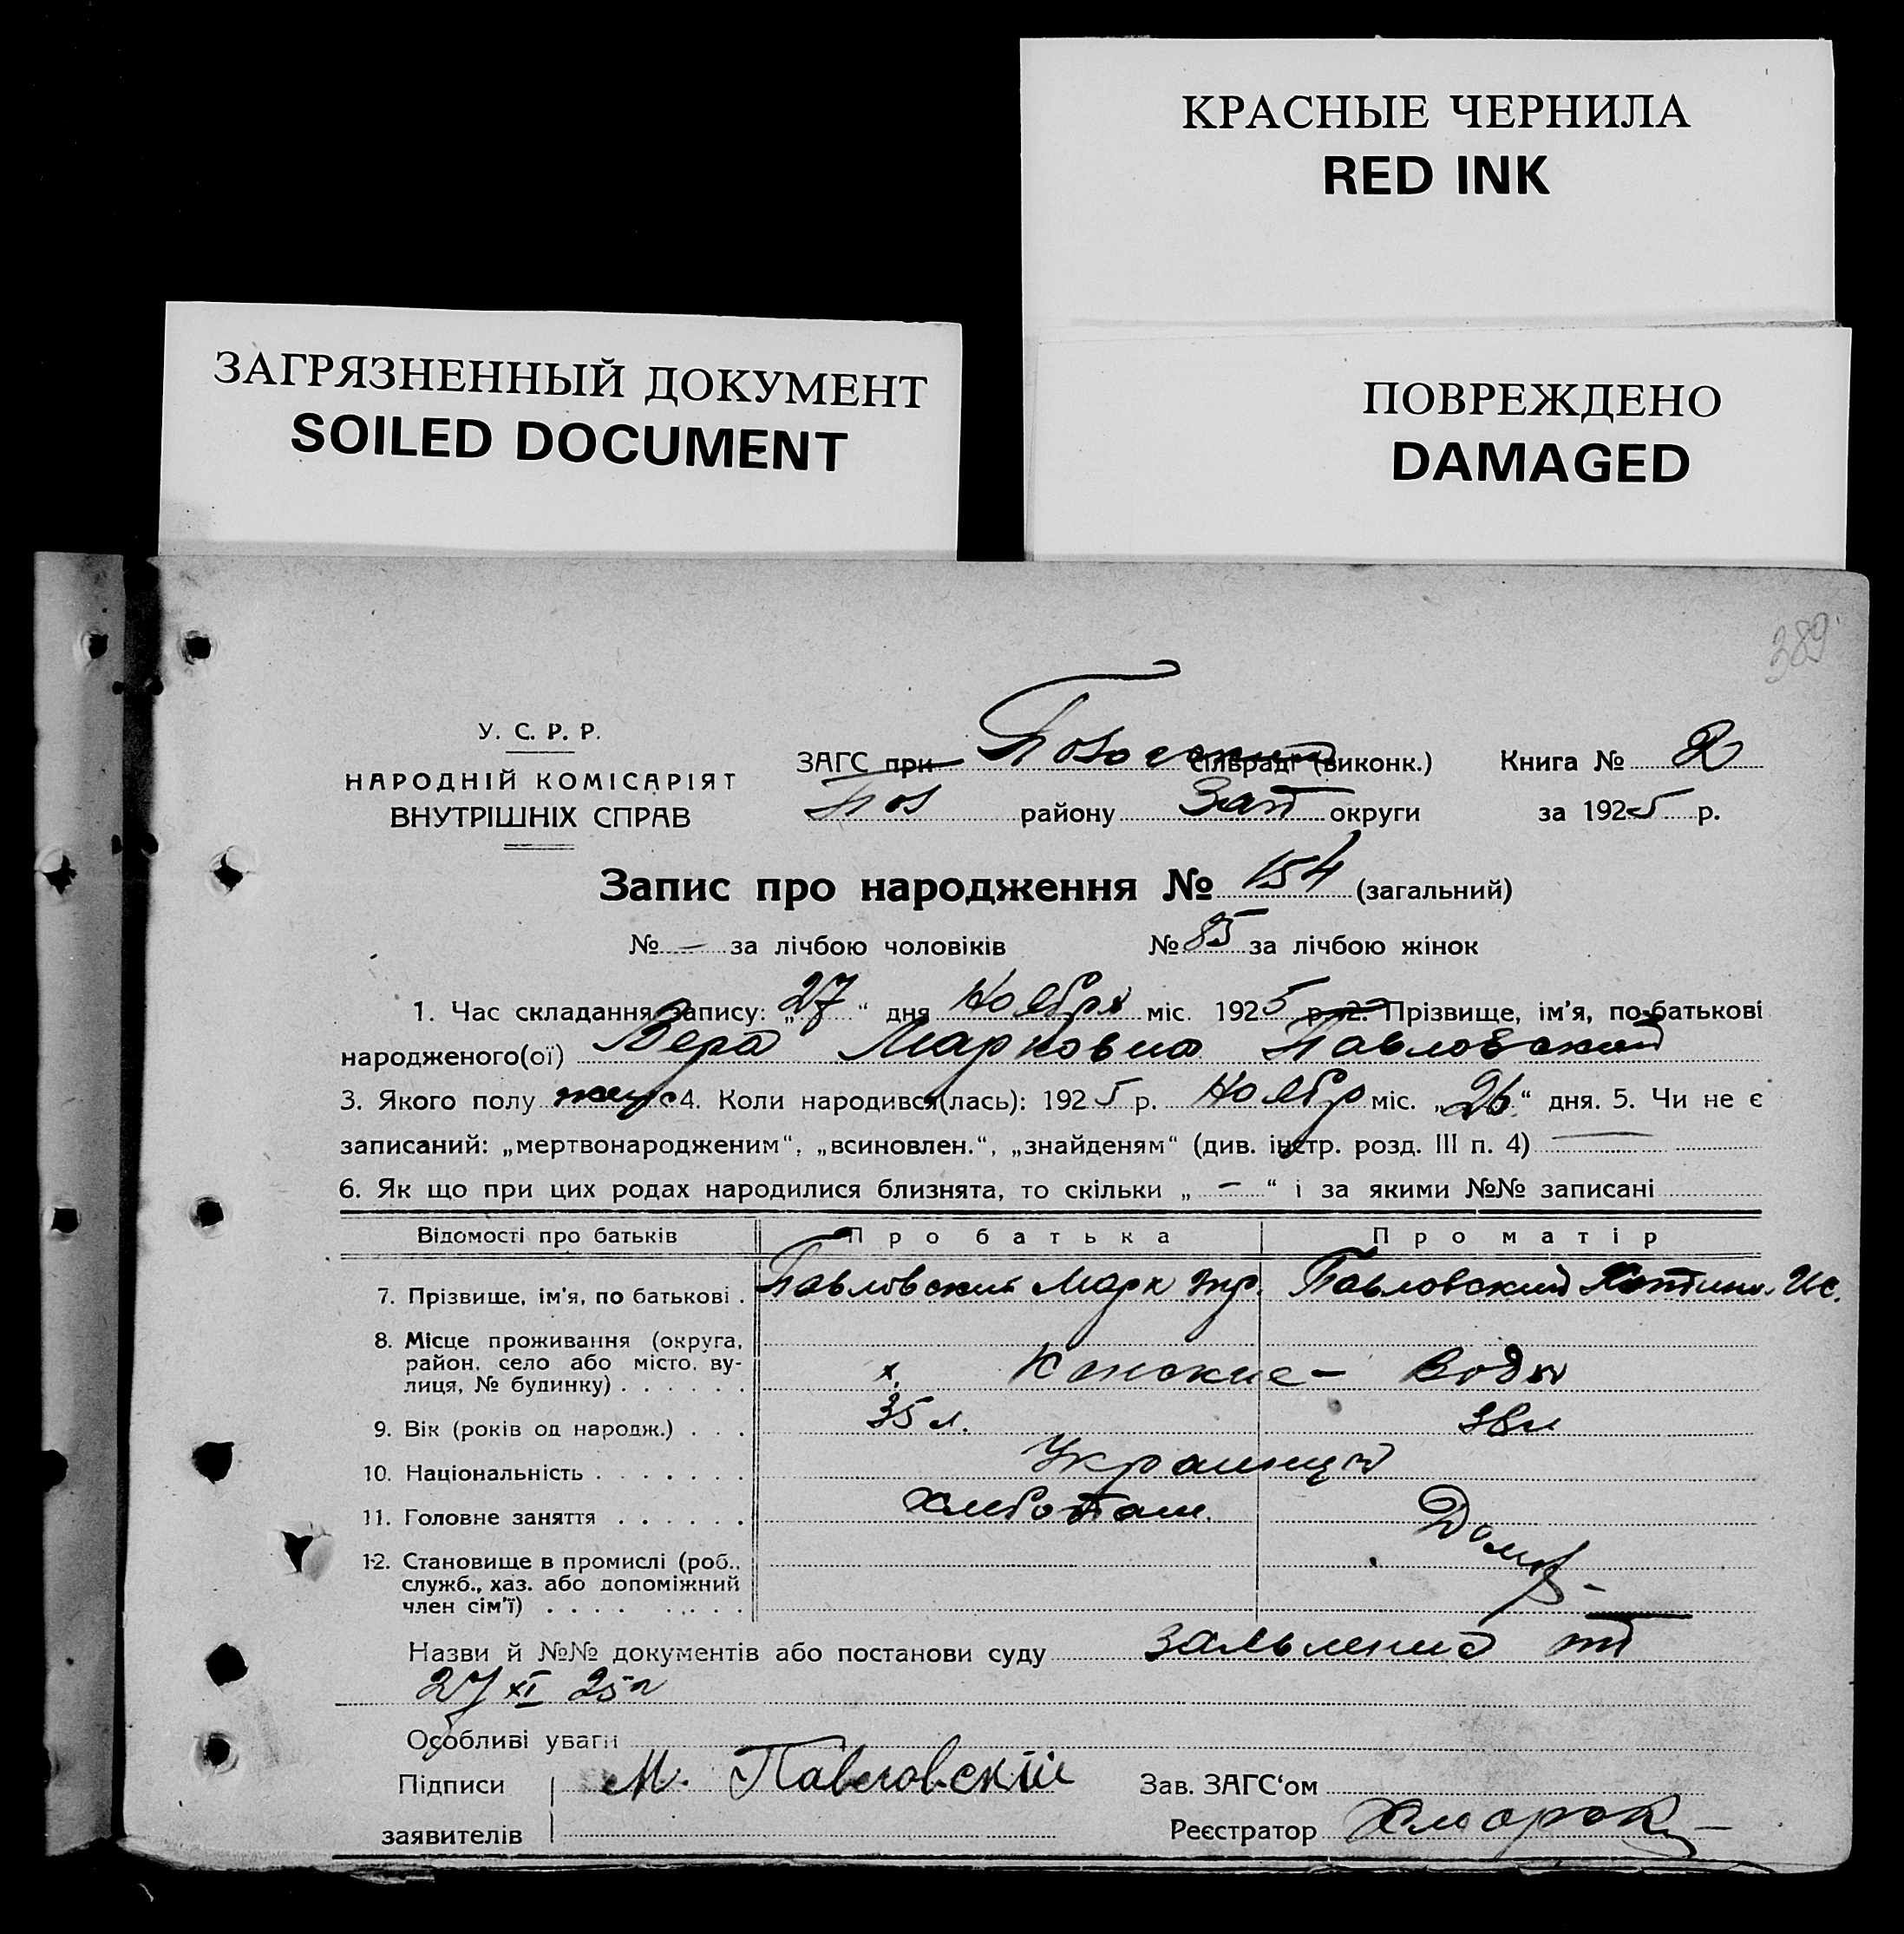 КРАСНЫЕ ЧЕРНИЛА
RED INK
ЗАГРЯЗНЕННЫЙ ДОКУМЕНТ
SOILED DOCUMENT
ПОВРЕЖДЕНО
DAMAGED
389
У. С. Р. Р.
НАРОДНІЙ КОМІСАРІЯТ
ВНУТРІШНІХ СПРАВ
ЗАГС при сільраді (виконк.)
району Зап округи
Книга № 2
за 1925 р.
Запис про народження № 154 (загальний)
№ — за лічбою чоловіків № 85 за лічбою жінок
1. Час складання запису: „27“ дня Ноября міс. 1925 р. 2. Прізвище, ім'я, по-батькові
народженого(ої) Вера Марковна Павловская
3. Якого полу женс 4. Коли народився(лась): 1925 р. Ноябр міс. „26“ дня. 5. Чи не є
записаний: „мертвонародженим“, „всиновлен.“, „знайденям“ (див. інстр. розд. III п. 4) —
6. Як що при цих родах народилися близнята, то скільки „ — “ і за якими №№ записані
Відомості про батьків Про батька Про матір
7. Прізвище, ім'я, по батькові . Павловский Марк Павловский
8. Місце проживання (округа,
район, село або місто, ву-
лиця, № будинку) . . . . . . х. Конские – Воды
9. Вік (років од народж.) . . . 35 л.
10. Національність . . . . . . . Украинцы
11. Головне заняття . . . . . . Домов
12. Становище в промислі (роб.,
служб., хаз. або допоміжний
член сім'ї) . . . . . . . .
Назви й №№ документів або постанови суду заявление от
27 XI 25 г
Особливі уваги
Підписи М. Павловскій Зав. ЗАГС'ом
заявителів Реєстратор